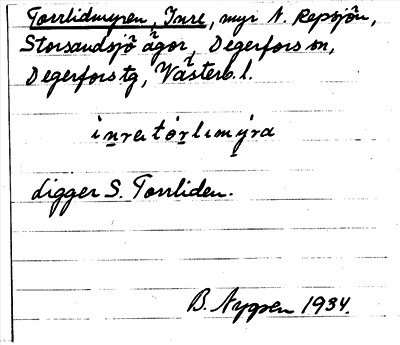 Torrlidmyren, Inre, myr N. Repsjön,
Storsandsjö ägor, Degerfors sn,
Degerfors tg, Västerb. l.
inretó̱rlımýra
Ligger S. Torrliden.
B. Nygren 1934.